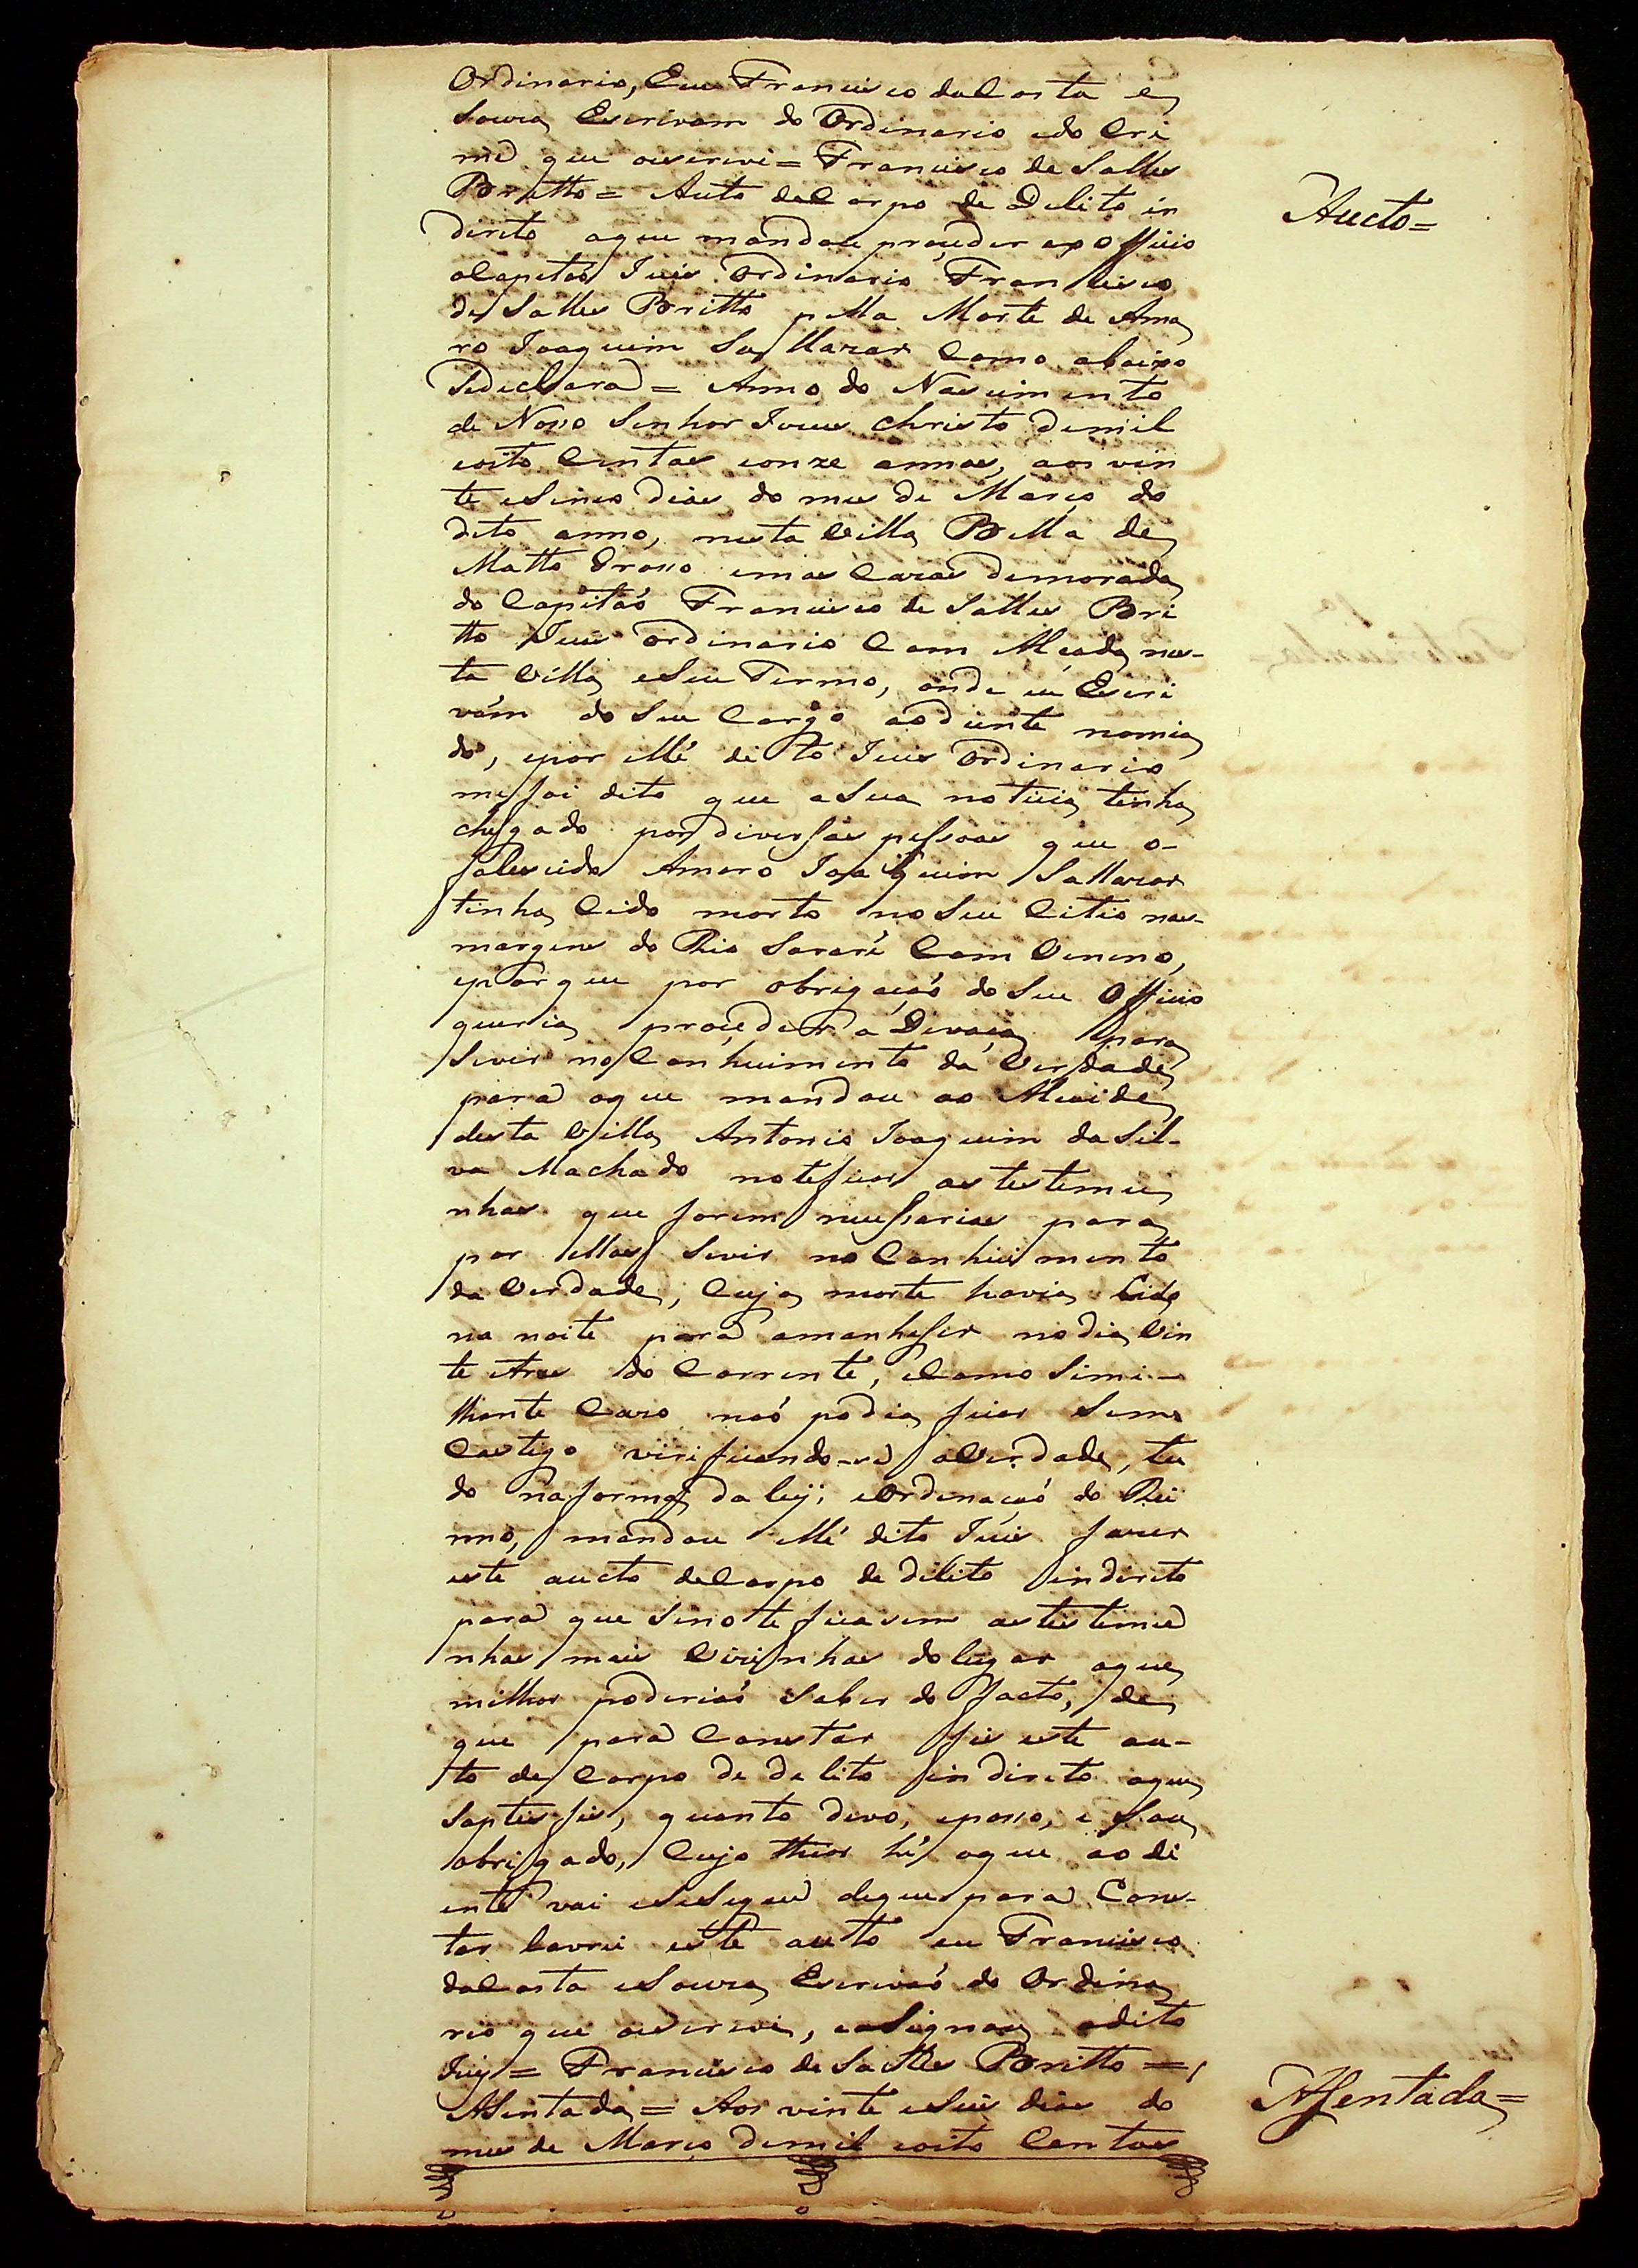 Ordinario, Eu Francisco da Costa e
Souza Escrivam do Ordinario e do Cri
me que o escrevi = Francisco de Salles
Britto = Auto de Corpo de Delito in
Aucto =
direto a que mandou proceder ex officio
o Capitaõ Juis Ordinario Francisco
de Salles Britto pella Morte de Ama
ro Joaquim Sallazar Como abaixo
se declara = Anno do Nascimento
de Noso Senhor Jezus Christo de mil
e oito Centos e onze annos, aos vin
te e Sinco dias do mes de Março do
dito anno, nesta Villa Bella de
Matto Groso em as Cazas de morada
do Capitaõ Francisco de Salles Bri
tto Juis ordinario Com Alcada nes-
ta Villa e Seu Termo, onde eu Escri
vam do Seu Cargo ao diente nomia
do, e por elle dito Juis ordinario
me foi dito que a Sua noticia tinha
chegado por diversas pessoas que o-
falescido Amaro Joaquim Sallazar
tinha Cido morto no Seu Citio nas-
margens do Rio Sararé Com Veneno,
e porque por obrigaçaõ do Seu Officio
queria proceder a Devaça para
Sevir no Conhecimento da Verdade
para o que mandou ao Alcaide
desta Villa Antonio Joaquim da Sil-
va Machado noteficar as testemu
nhas que forem necessarias para
por ellas Sevir no Conhecimento
da Verdade, Cuja morte havia Cido
na noite para amanheser no dia Vin
te e tres do Corrente, e Como Simi-
lhante Cazo naõ podia ficar Sem
Castigo verificando-se a Verdade, tu
do na forma da ley, e Ordenaçaõ do Rei
no, mandou elle dito Juis fazer
este aucto de Corpo de dilito indireto
para que Se noteficasem as testemu
nhas mais Vizinhas do lugar a que
milhor poderiaõ Saber do facto, de
que para Constar fis este au-
to de Corpo de delito indireto a que
Saptisfis, quanto devo, e poso, e Sou
obrigado, Cujo theor hé o que ao di
ente vai e Segue de que para Cons-
tar lavrei este auto eu Francisco
da Costa e Souza Escrivaõ do Ordina
rio que o escrevi, e asignou o dito
Juis = Francisco de Salles Britto =
Asentada = Aos vinte e Seis dias do
Assentada =
mes de Março de mil e oito Centos